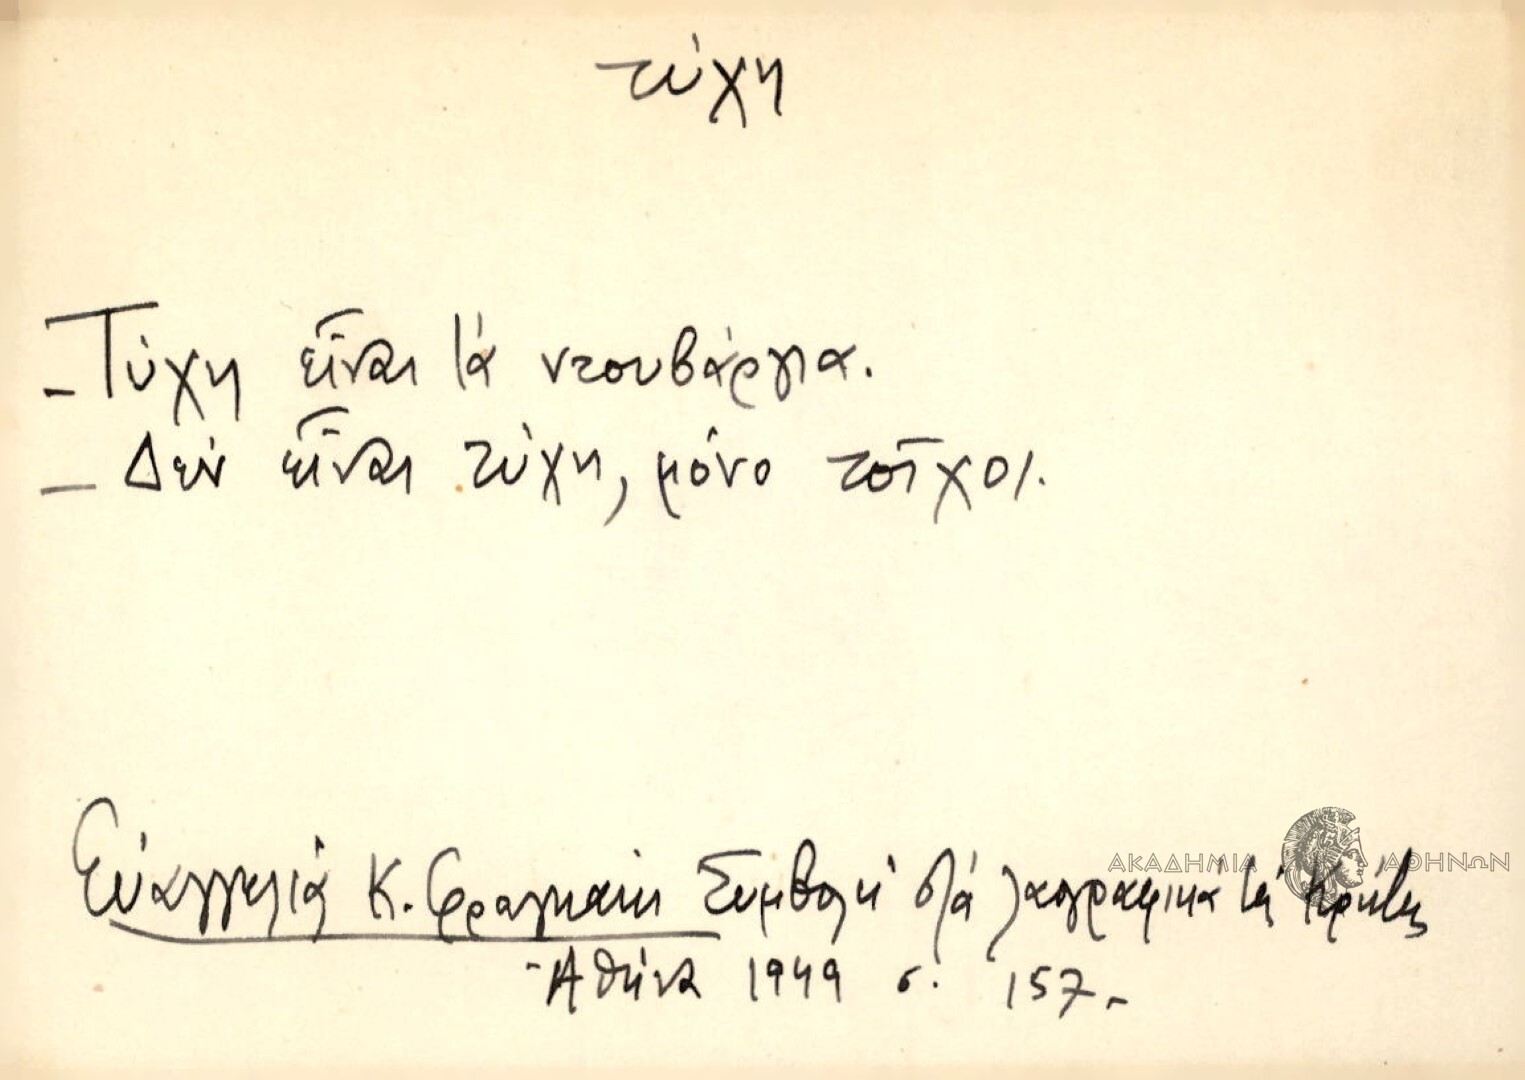 τύχη
- Τύχη εἶναι τά ντουβάργια.
- Δεν εἶναι τύχη, μόνο τοῖχοι.
Εὐαγγελιά Κ. Φραγκάκι Συμβολή στά λαογραφικά τῆς Κρήτης
Ἀθήνα 1949 σ. 157.-
ΑΚΑΔΗΜΙΑ ΑΘΗΝΩΝ